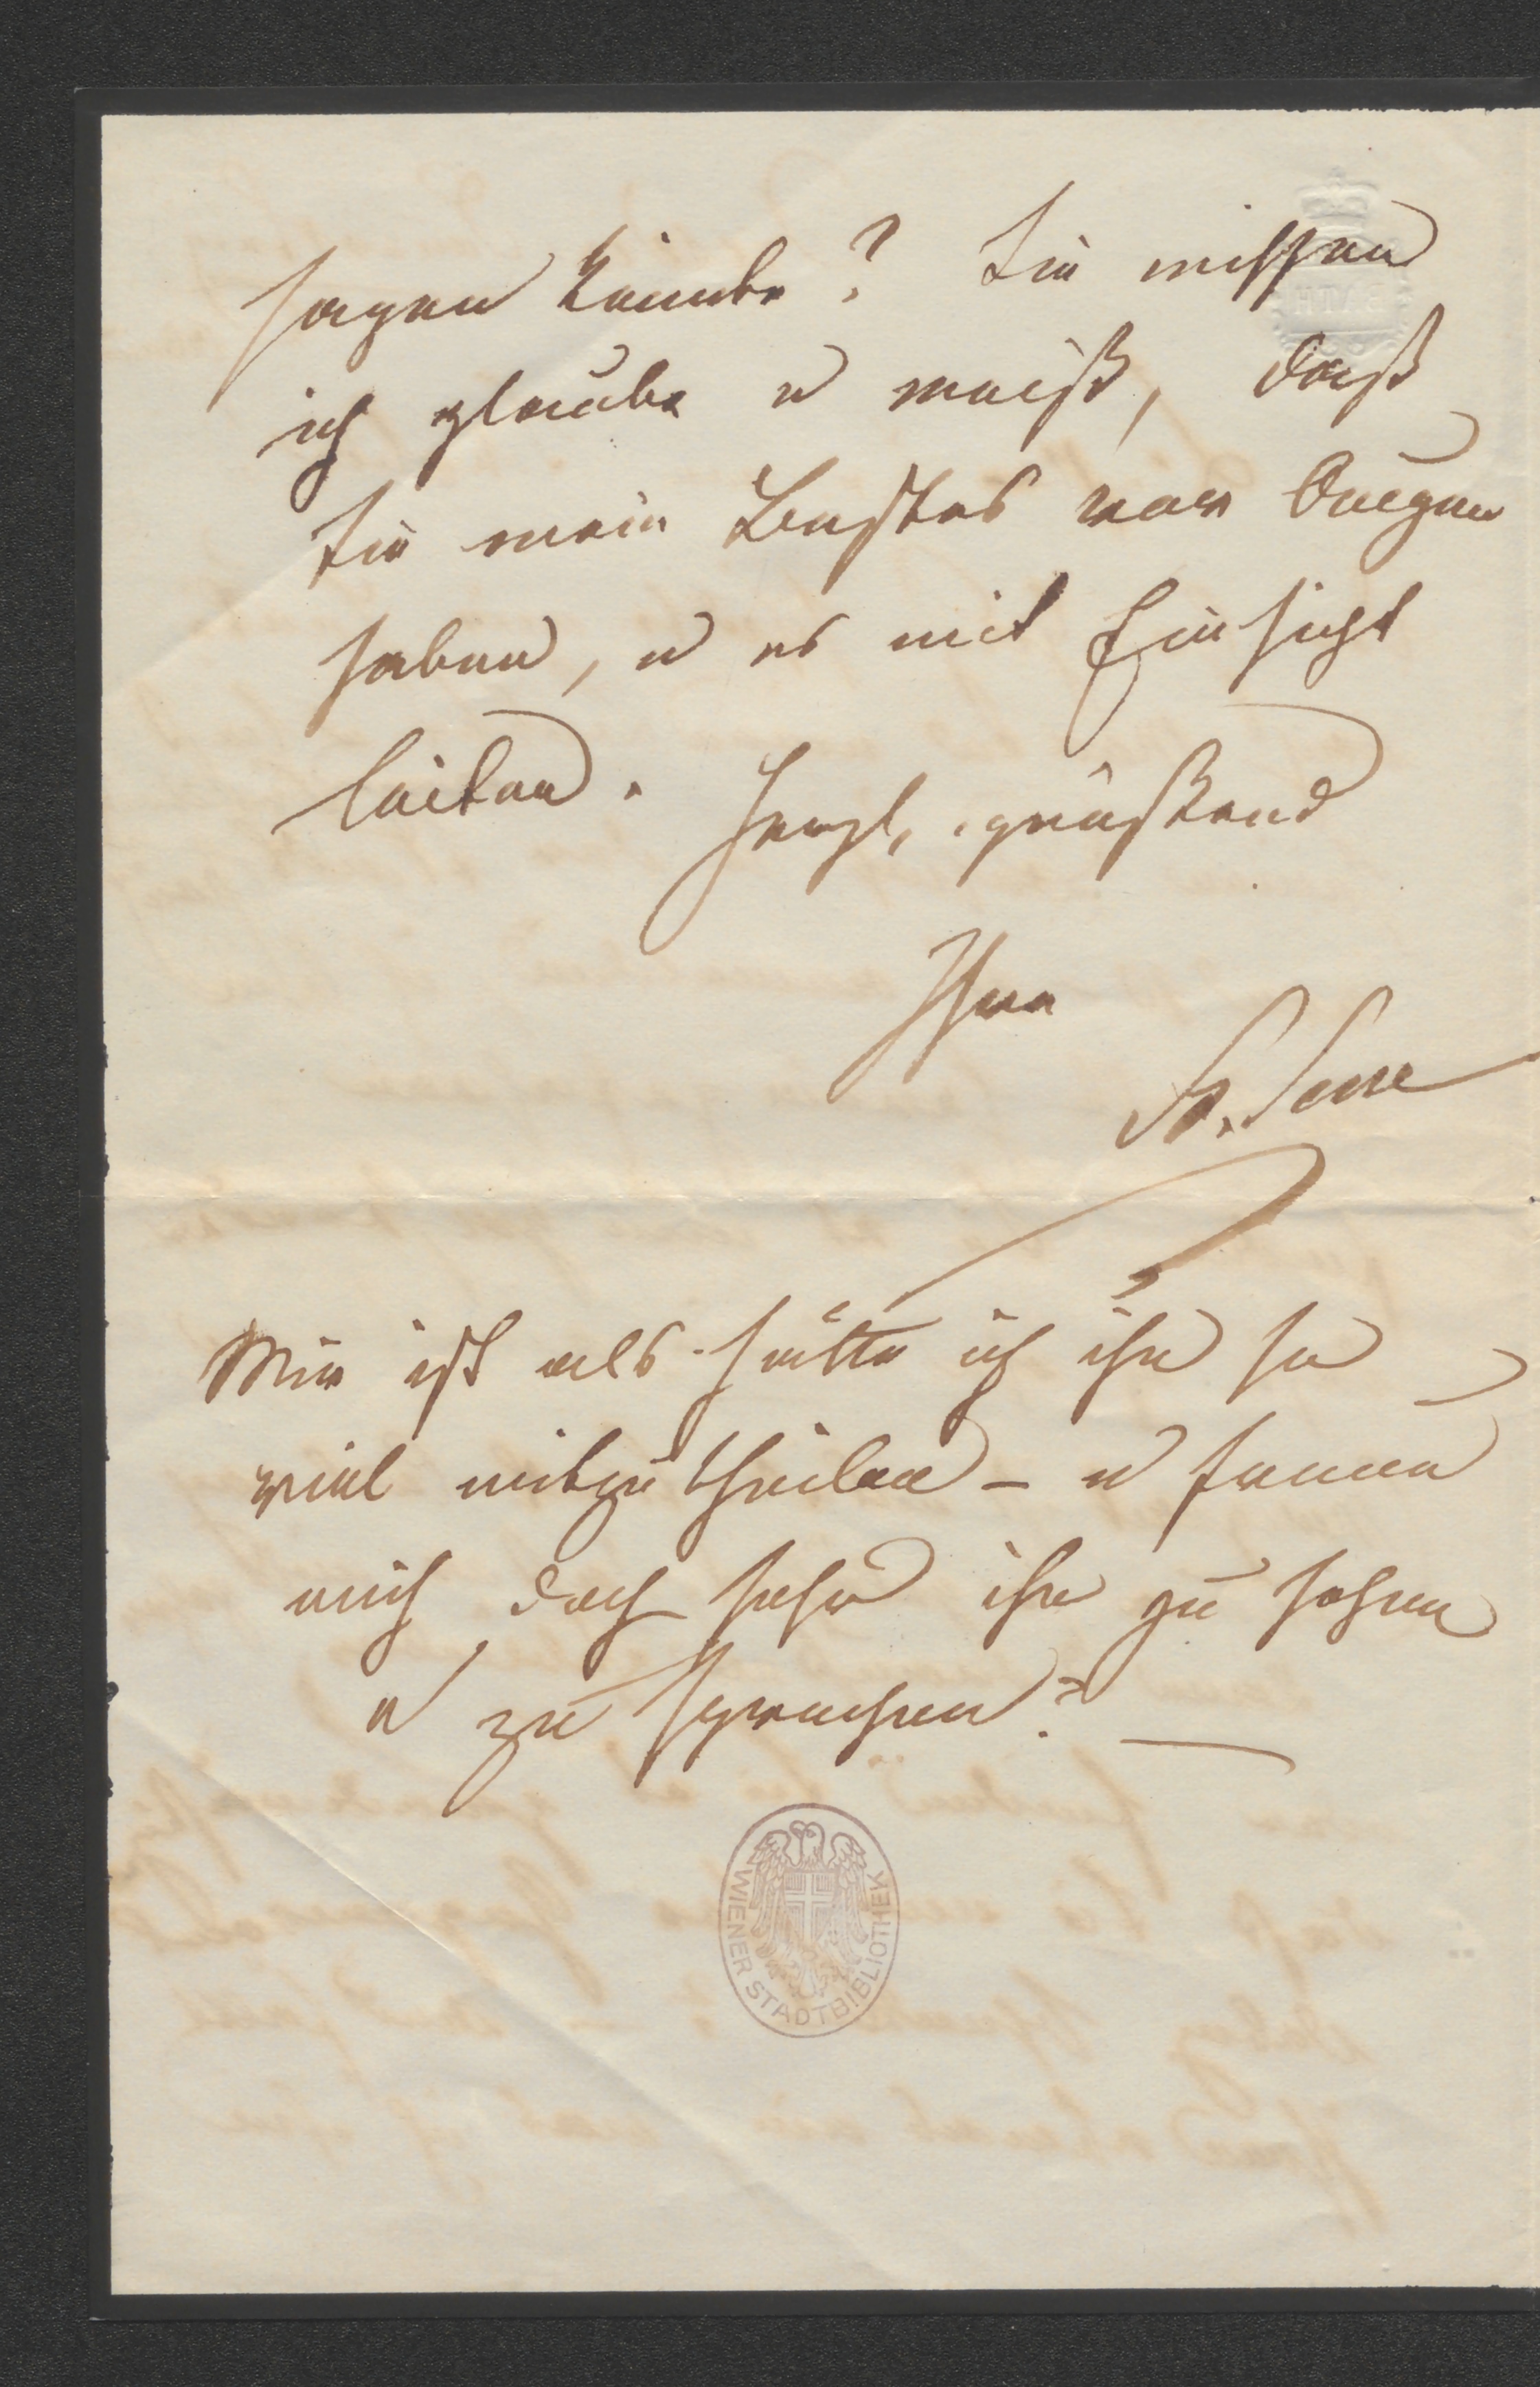 sagen könnte? Sie wissen
ich glaube u weiß, daß
Sie mein Bestes vor Augen
haben, u es mit Einsicht
leiten. Herzl. grüßend
Ihre
Mir ist als hätte ich ihn so
viel mitzutheilen – u freue
mich doch sehr ihn zu sehen
u zu sprechen? —
WIENER STADTBIBLIOTHEK
BATH